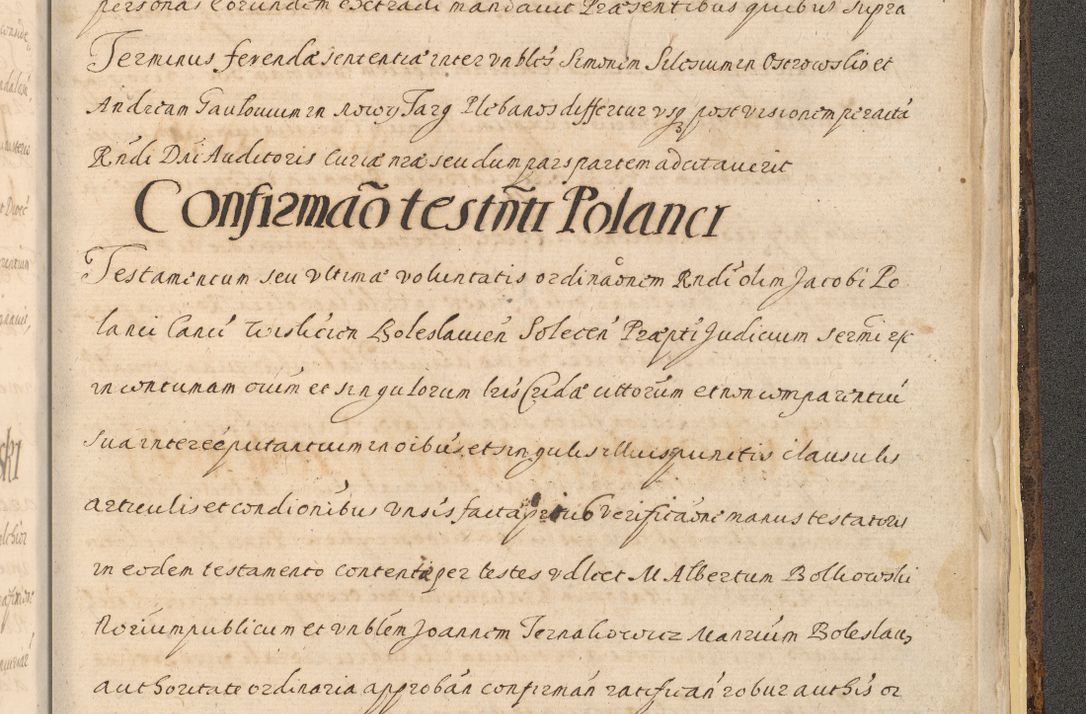 personas eorundem extradi mandavit Præsentibus quibus supra
Terminus ferendæ sententiæ inter vnbles Simonem Silesium in Ostrowsko et
Andream Gaulouium in Nowy Targ Plebanos differtur vsq post visionem peractã
Rndi Dni Auditoris Curiæ nræ seu dum pars partem adcitauerit
Confirmaõ testm̃ti Polanci
Testamentum seu vltimæ voluntatis ordinãonem Rndi olim Jacobi Po
lanci Canci Wisliciem Boleslauien' Solecen' Præpti Judicium sermi
in contumam ouium et singulorum
sua interee putantium in oibus et singulis illius punctis clausulis
articulis et condionibus vnsis facta prius verificãone manus testatoris
in eodem testamento contenta per testes vdlcet M Albertum Bolkowski
Norium publicum et vnblem Joannem Ternakowicz Manrium Boleslau
authoritate ordinaria approban' confirman' ratifican' robur